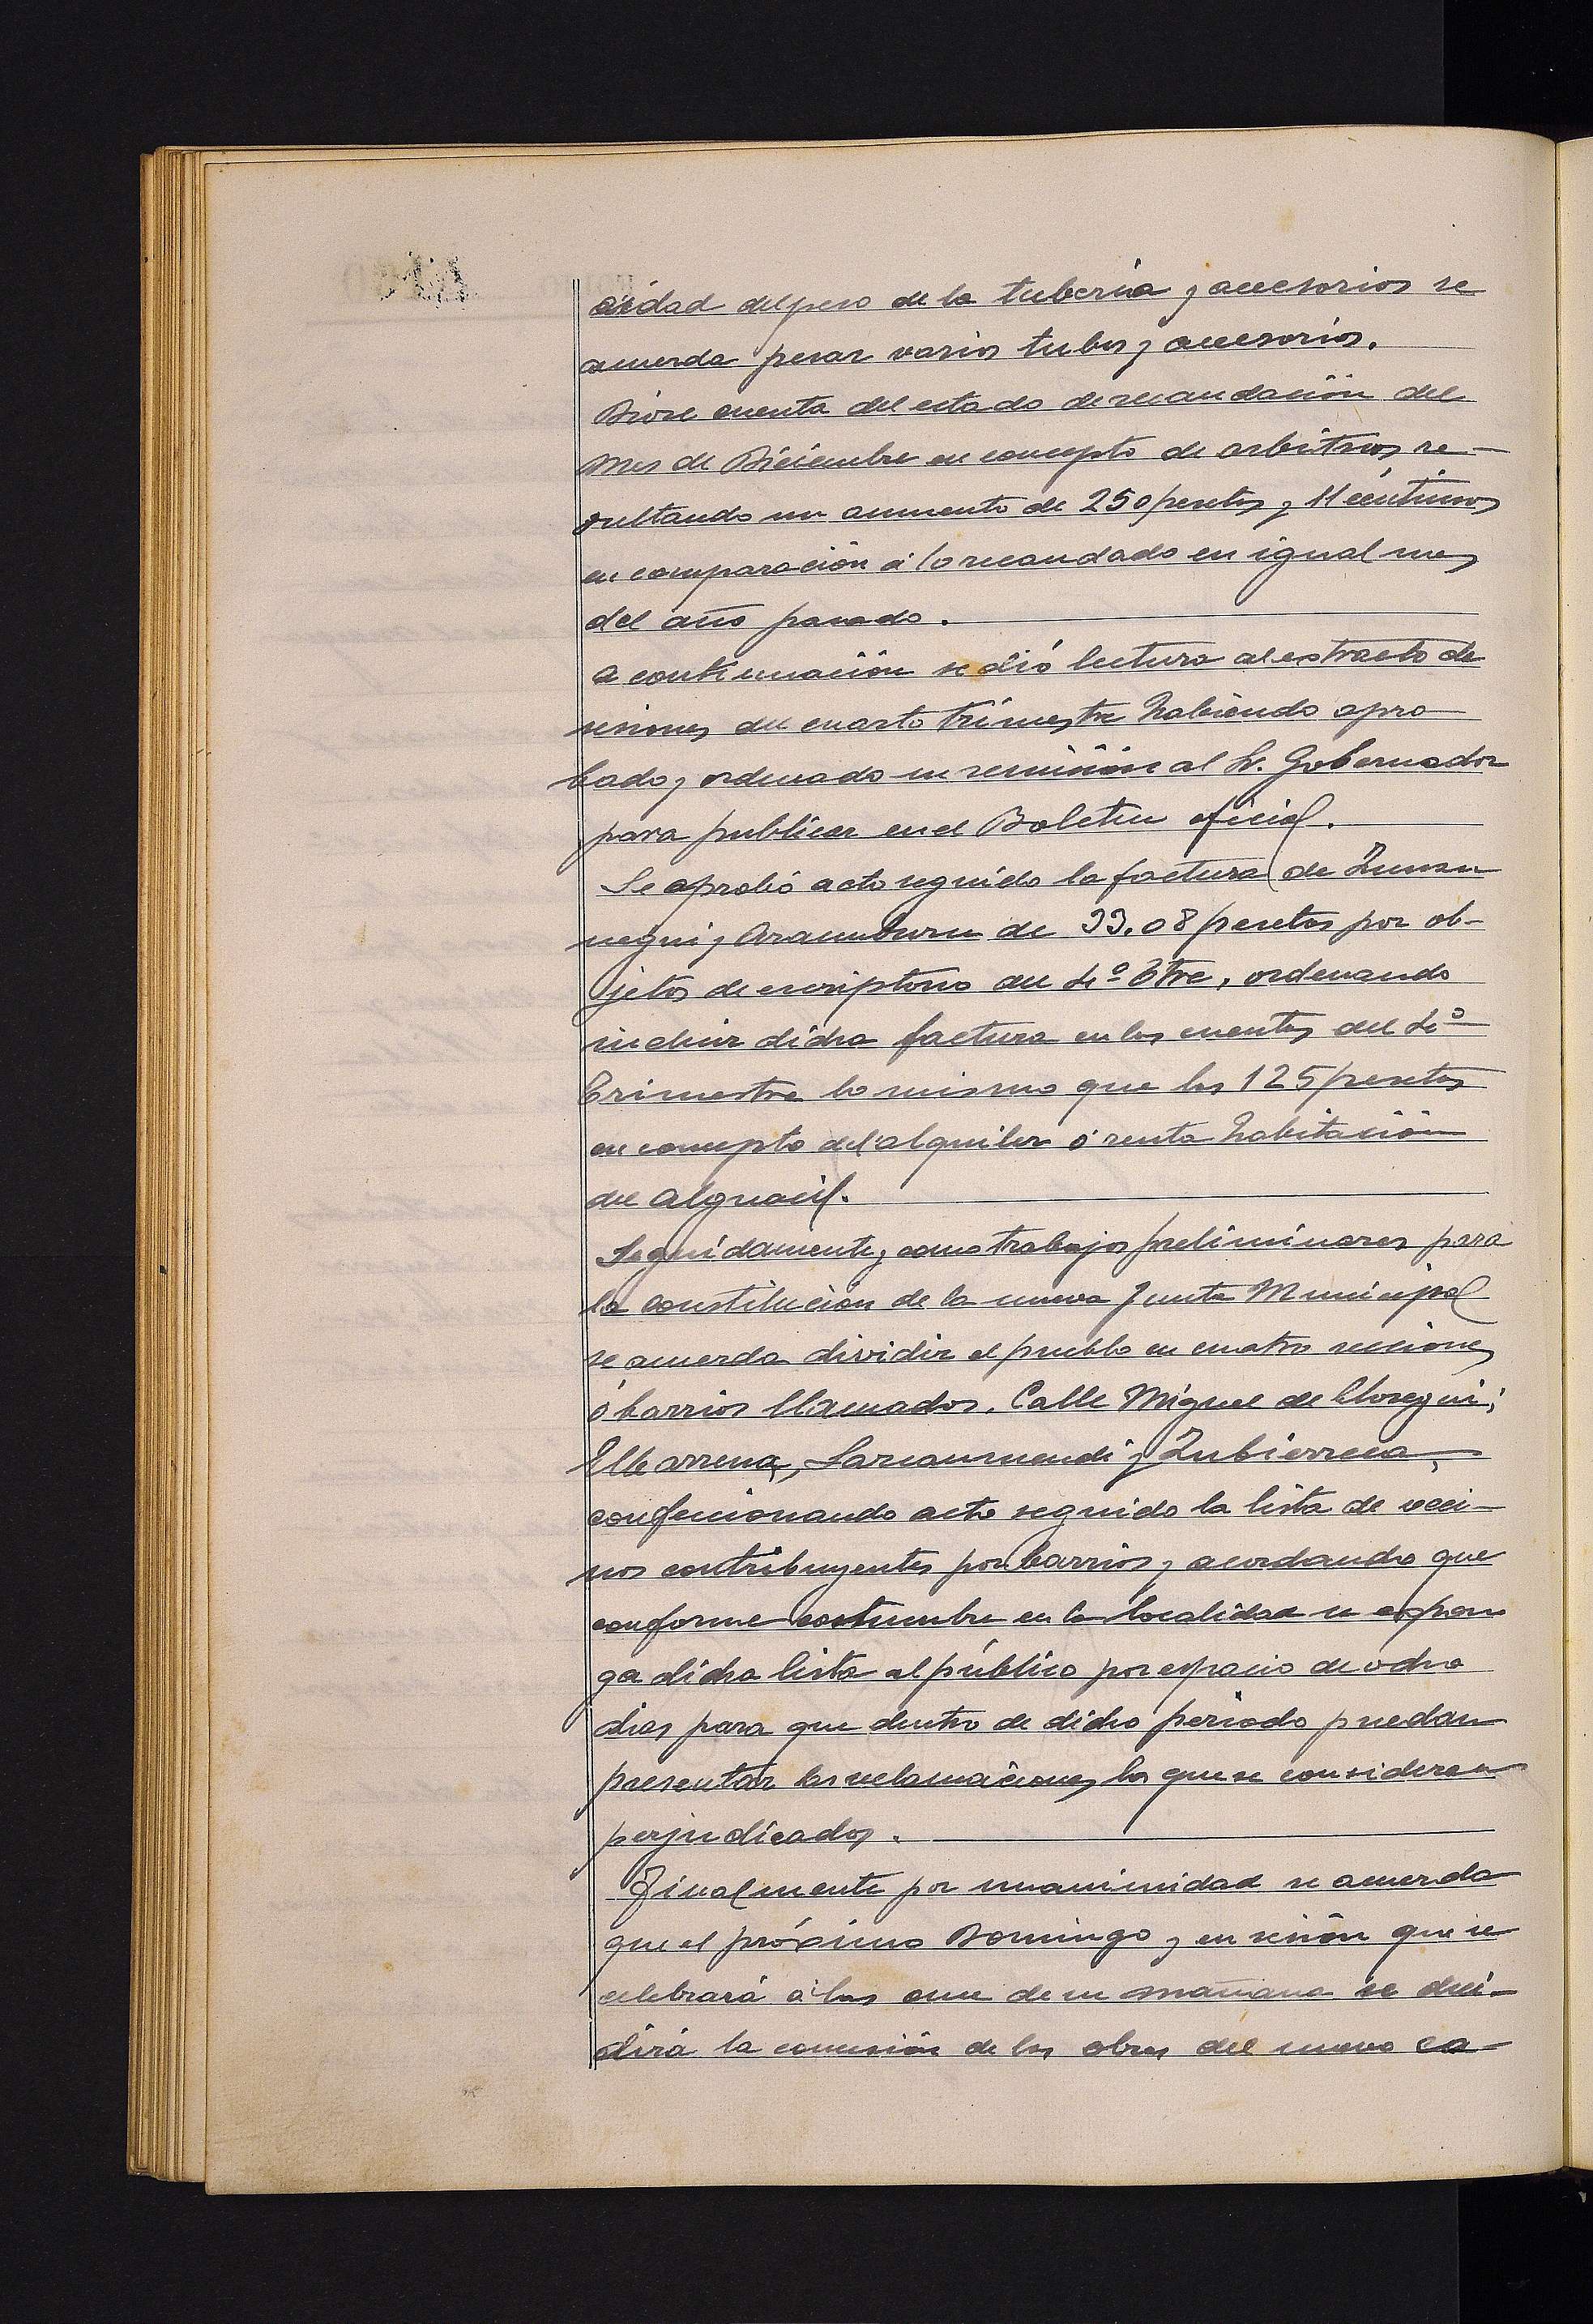 cidad del peso de la tubería y accesorios se
acuerda pesar varios tubos y accesorios.
Dióse cuenta del estado de recaudación del
mes de Diciembre en concepto de arbitrios re-
sultando un aumento de 250 pesetas y 11 céntimos
en comparación á lo recaudado en igual mes
del año pasado.
A continuación se dió lectura al extracto de
sesiones del cuarto trimestre habiendo apro
bado y ordenado su remisión al Sr. Gobernador
para publicar en el Boletin oficial.
Se aprobó acto seguido la factura de Zuma
negui y Aramburu de 33.08 pesetas por ob-
jetos de escriptorio del 4º Etre, ordenando
incluir dicha factura en las cuentas del 4º
trimestre lo mismo que las 125 pesetas
en concepto del alquiler ó renta habitación
del alguacil.
Seguidamente y como trabajos preliminares para
la constitución de la nueva Junta Municipal
se acuerda dividir el pueblo en cuatro secciones
ó barrios llamados. Calle Miguel de
Elbarrena, Larcaumendi y Zubierreca,
confeccionando acto seguido la lista de veci-
nos contribuyentes por barrios y acordando que
conforme costumbre en la localidad se expon
ga dicha lista al público por espacio de ocho
dias para que dentro de dicho periodo puedan
presentar las reclamaciones los que se consideren
perjudicados.
Finalmente por unanimidad se acuerda
que el próximo Domingo y en sesión que se
celebrará á las once de su mañana se deci-
dirá la concesión de las obras del nuevo ca-